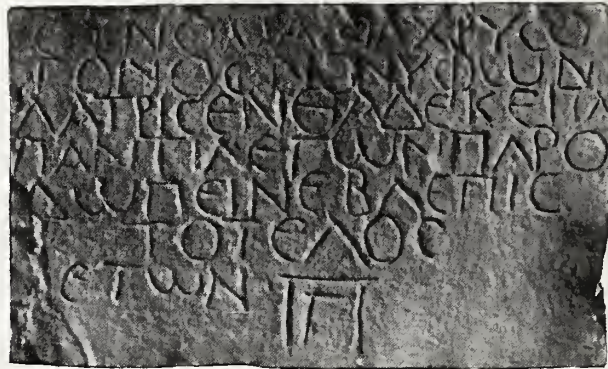 ΧΡΥCΟ
ΓΟΝΟC ΝΥΦωΝ
ΛΑΤΡΙCΕΝΘΑΔΕΚΕΙΜΑΙ
ΠΑΝΤΙΛΕΓωΝΠΑΡΟ
ΔωΠΕΙΝΕΒΛΕΠΙC
ΤΟΤΕΛΟC
ΕΤωΝ Π